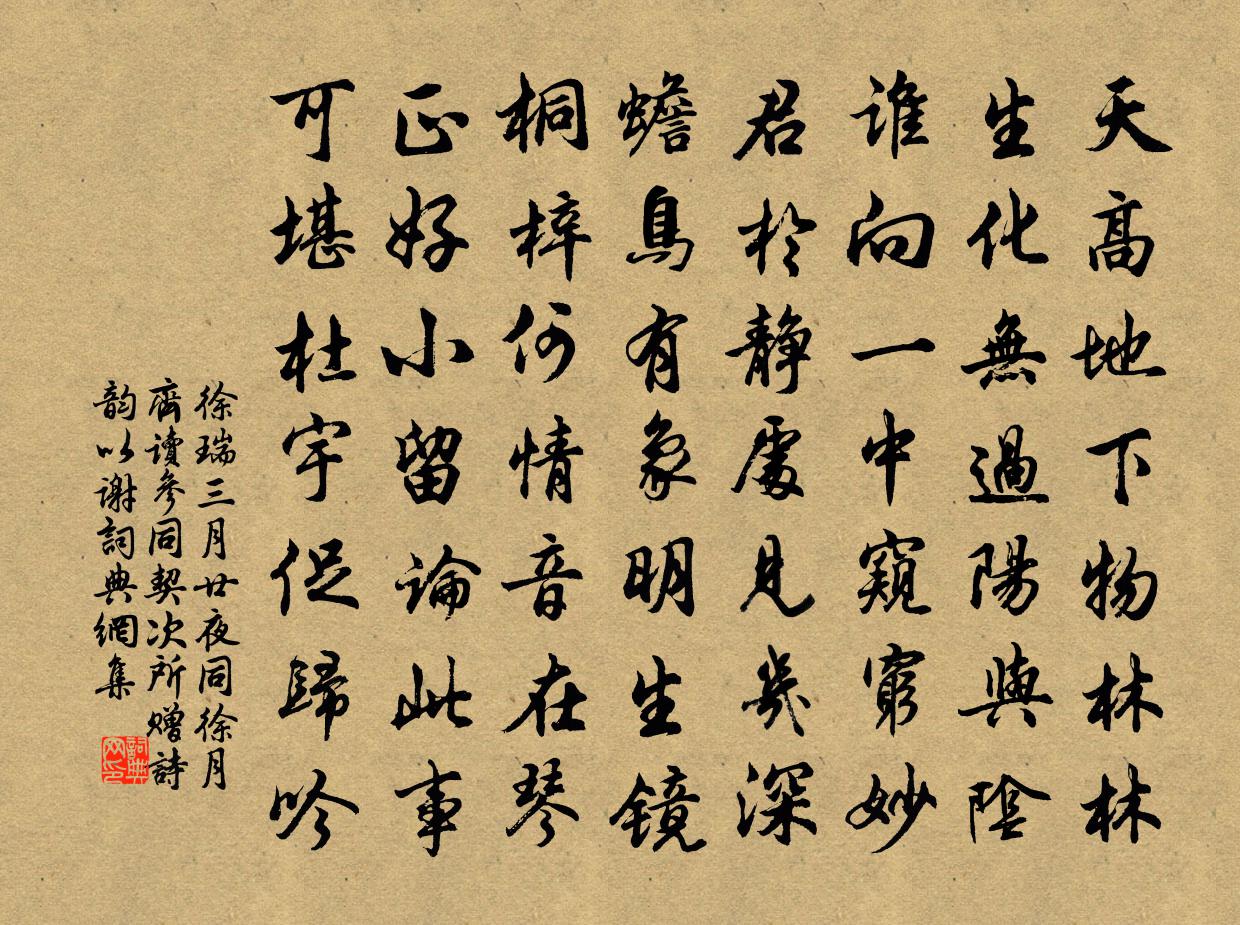 天高地下物林林
生化無過陽與陰
誰向一中窺窮妙
君於静處見幾深
蟾烏有象明生鏡
桐梓何情音在琴
正好小留論此事
可堪杜宇促歸吟
徐瑞三月廿夜同徐月
齋讀參同契次所贈詩
韵以謝詞典網集
詞典
网印